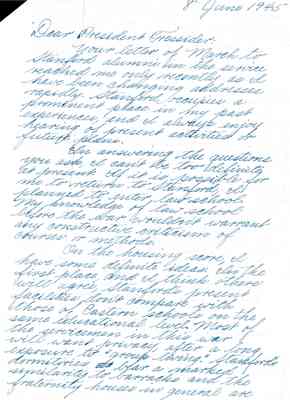 8 June 1945
Dear President Tresidder:
Your letter of March to
Stanford alumni in the service
reached me only recently as I
have been changing addresses
rapidly. Stanford occupies a
prominent place in my past
experiences, and I always enjoy
hearing of present activities &
future plans.
In answering the questions
you ask I can't be too definite
at present. If it is possible for
me to return to Stanford, I
planned to enter law school.
My knowledge of law school
before the war wouldn't warrant
any constructive criticism of
courses or methods.
On the housing score, I
have some definite ideas. In the
first place and I think others
will agree, Stanford's present
facilities don't compare with
those of Eastern schools on the
same educational level. Most of
the servicemen in this war
will want privacy after a long
exposure to "group living." Stanford's
dormitories bear a marked
similarity to barracks and the
fraternity houses in general are